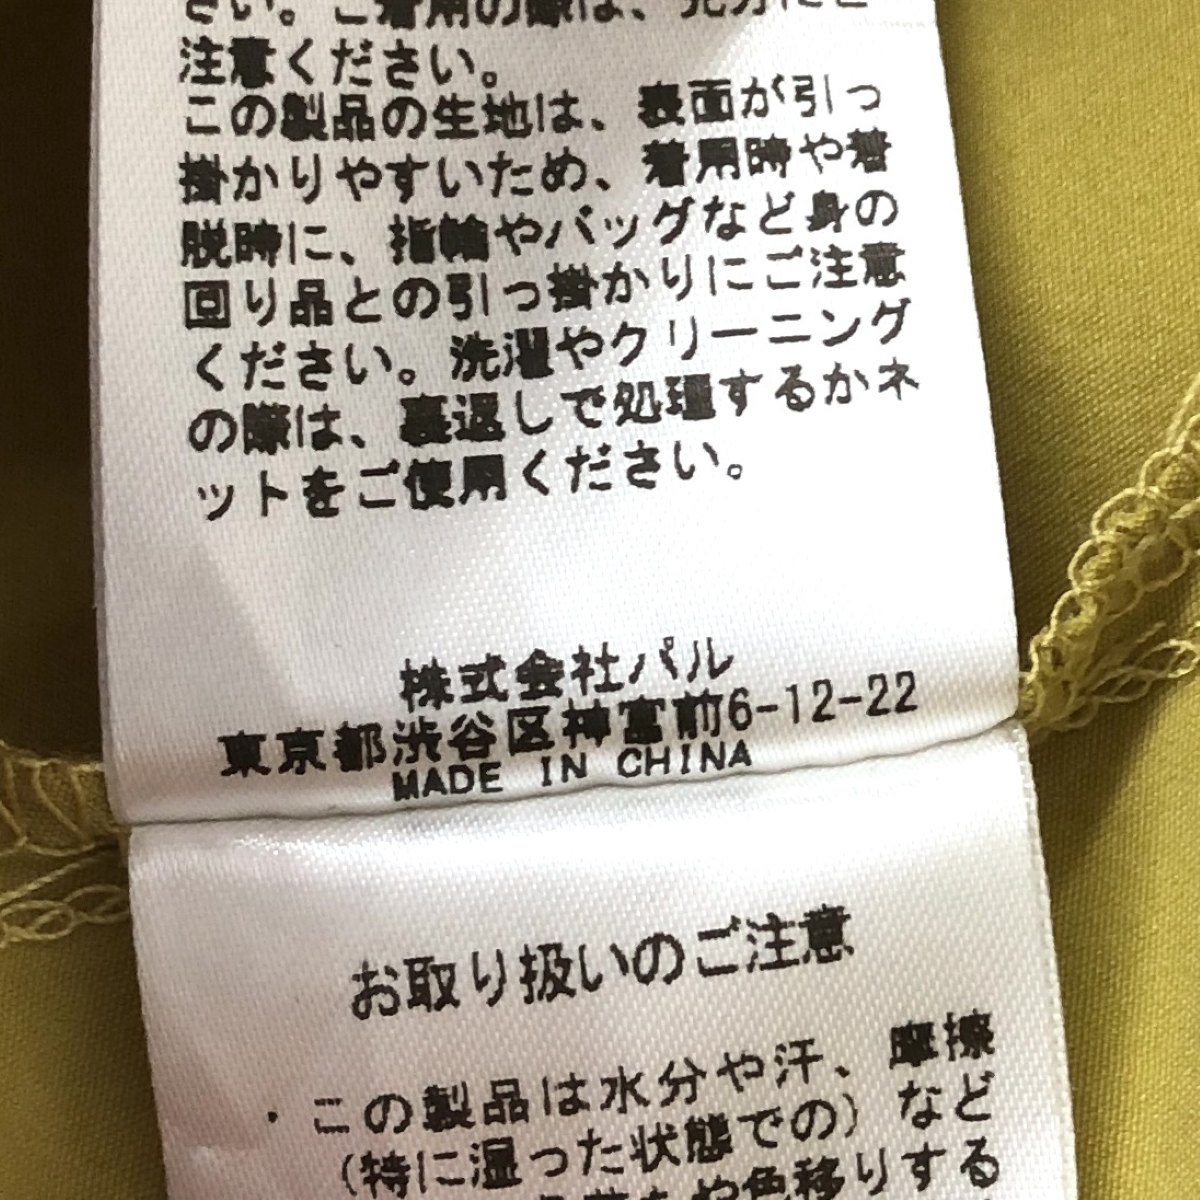 さい。ご着用の際は、充分にご
注意ください。
この製品の生地は、表面が引っ
掛かりやすいため、着用時や着
脱時に、指輪やバッグなど身の
回り品との引っ掛かりにご注意
ください。洗濯やクリーニング
の際は、裏返しで処理するかネ
ットをご使用ください。
株式会社パル
東京都渋谷区神宮前6-12-22
MADE IN CHINA
お取り扱いのご注意
・この製品は水分や汗、摩擦
(特に湿った状態での)など
や色移りする